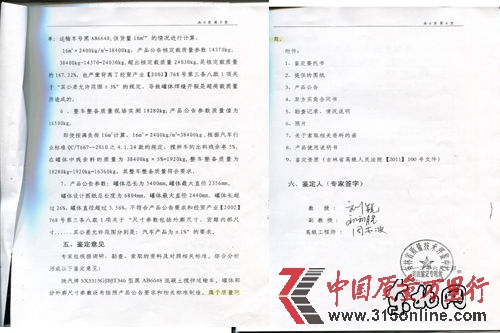 共6页 第5页
率；运输车号黑 AB6648,供货量 16m³" 的情况进行计算。
16m³×2400kg/m³=38400kg. 产品公告核定载质量参数 14370kg.
38400kg-14370=24030kg,超出核定载质量 24030kg,是核定载质量
的 167.22%. 也严重背离了经贸产业【2002】768 号第三条八款 1 项关
于 "其公差允许范围±3%" 的规定，导致罐体焊缝开裂是超荷载质量
所造成的。
6、整车整备质量现场实测 18280kg,产品公告参数质量值为
16500kg.
即使按满负荷 16m³计算。16m³×2400kg/m³=38400kg.根据汽车行
业标准 QC/T667—2010 之 4.1.24 款的规定，搅拌车的出料残余率 5%.
在罐体中残余料的质量为 38400kg×5%=1920kg.整车整备质量为
18280kg-1920kg=16360kg.其整备质量符合要求。
7、产品公告参数：罐体总长为 5400mm,罐体最大直径 2356mm.
罐体设计图纸总长度为 6804mm.罐体最大直径 2440mm.罐体长超
过 26%.罐体直径超过 3.56%.不符合产品公告要求和经贸产业【2002】
768 号第三条八款 1 项关于 "尺寸参数包括外廓尺寸、货箱的内部尺
寸......其公差允许范围分别是：汽车产品为±1%" 的要求。
五、鉴定意见
专家组根据调研、勘查、索取的资料及对照相关标准，综合分析
形成以下鉴定意见：
陕汽牌 SX5315GJBJT346 型黑 AB6648 混凝土搅拌运输车，罐体部
分外廓尺寸参数没有按照产品公告要求和相关标准制造。属于质量问
共6页 第6页
题。
附件：
1、鉴定委托书
2、提供的图纸
3、产品公告
4、双方买卖合同书
5、勘查记录、情况说明
6、照片
7、关于索取相关资料的函
8、产品使用说明书
9、鉴定资质（吉林省高级人民法院【2011】100 号文件）
六、鉴定人（专家签字）
教 授：
副 教 授：
高级工程师：
中国质量万里行